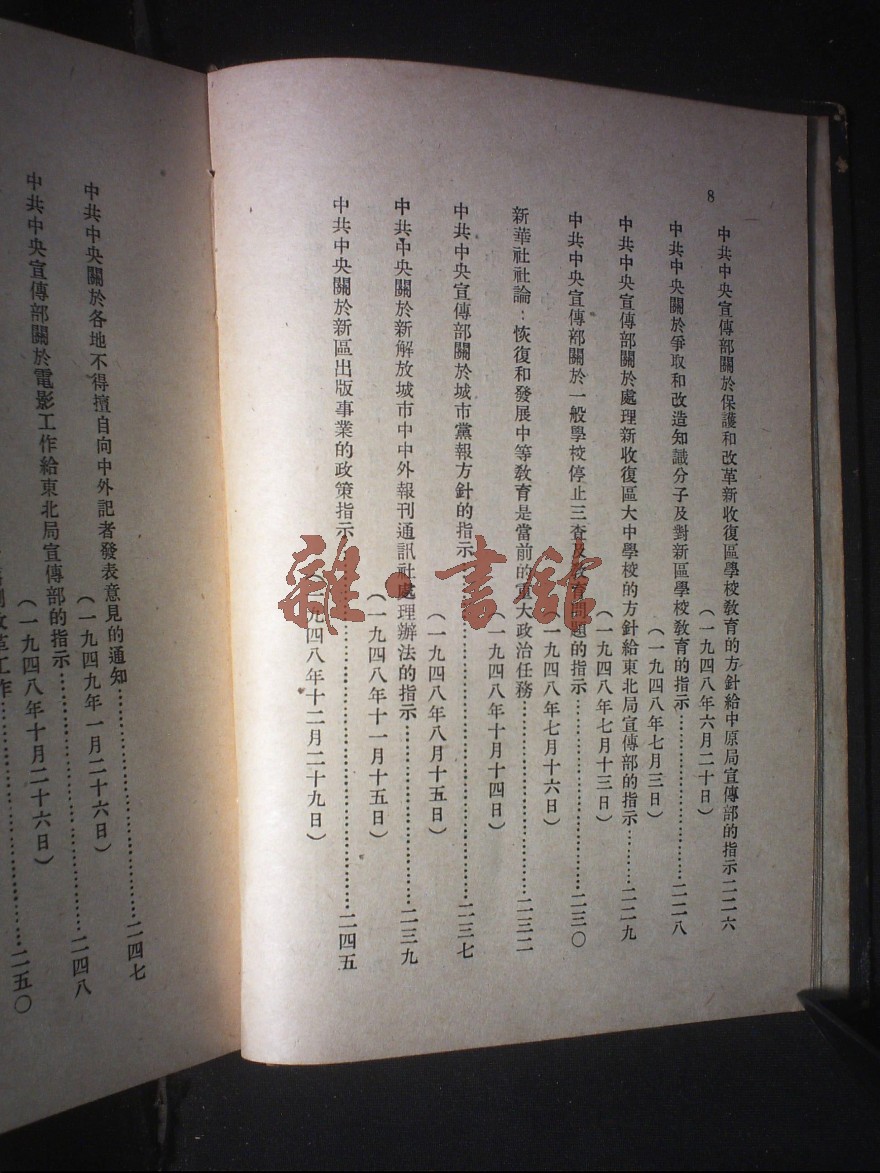 8
中共中央宣傳部關於保護和改革新收復區學校教育的方針給中原局宣傳部的指示二二六
(一九四八年六月二十日)
中共中央關於爭取和改造知識分子及對新區學校教育的指示……………二二八
(一九四八年七月三日)
中共中央宣傳部關於處理新收復區大中學校的方針給東北局宣傳部的指示………二二九
(一九四八年七月十三日)
中共中央宣傳部關於一般學校停止三查及教育問題的指示……………………二三〇
(一九四八年七月十六日)
新華社社論:恢復和發展中等教育是當前的重大政治任務……………………二三二
(一九四八年十月十四日)
中共中央宣傳部關於城市黨報方針的指示………………………………二三七
(一九四八年八月十五日)
中共中央關於新解放城市中中外報刊通訊社處理辦法的指示…………………二三九
(一九四八年十一月十五日)
中共中央關於新區出版事業的政策指示………………………………………二四五
(一九四八年十二月二十九日)
中共中央關於各地不得擅自向中外記者發表意見的通知……………………二四七
(一九四九年一月二十六日)
中共中央宣傳部關於電影工作給東北局宣傳部的指示……………………二四八
(一九四八年十月二十六日)
改革工作……………………二五〇
雜·書館